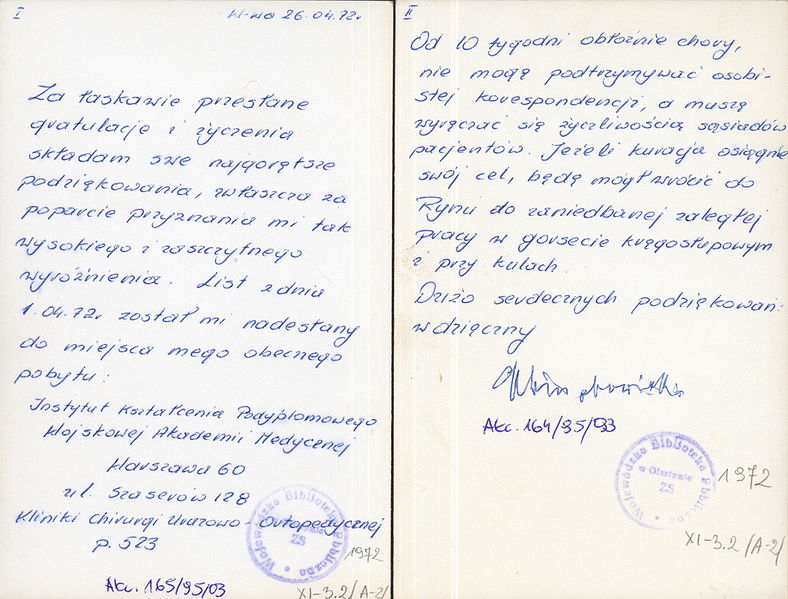 I
W-wa 26.04.72r
Za łaskawie przesłane
gratulacje i życzenia
składam swe najgorętsze
podziękowania, zwłaszcza za
poparcie przyznania mi tak
wysokiego i zaszczytnego
wyróżnienia. List z dnia
1.04.72r został mi nadesłany
do miejsca mego obecnego
pobytu:
Instytut Kształcenia Podyplomowego
Wojskowej Akademii Medycznej
Warszawa 60
ul. Szaserów 128
Kliniki Chirurgi Urazowo-Ortopedycznej
p. 523
Wojewódzka Biblioteka Publiczna
ZS
1972
Akc. 165/95/03
XI-3.2/A-2/
II
Od 10 tygodni obłożnie chory,
nie mogę podtrzymywać osobi-
stej korespondencji, a muszę
wyręczać się życzliwością sąsiadów
pacjentów. Jeżeli kuracja osiągnie
swój cel, będę mógł wrócić do
Rynu do zaniedbanej zaległej
pracy w gorsecie kręgosłupowym
i przy kulach.
Dużo serdecznych podziękowań
wdzięczny
Akc. 164/95/03
Wojewódzka Biblioteka Publiczna
w Olsztynie
ZS
1972
XI-3.2/A-2/